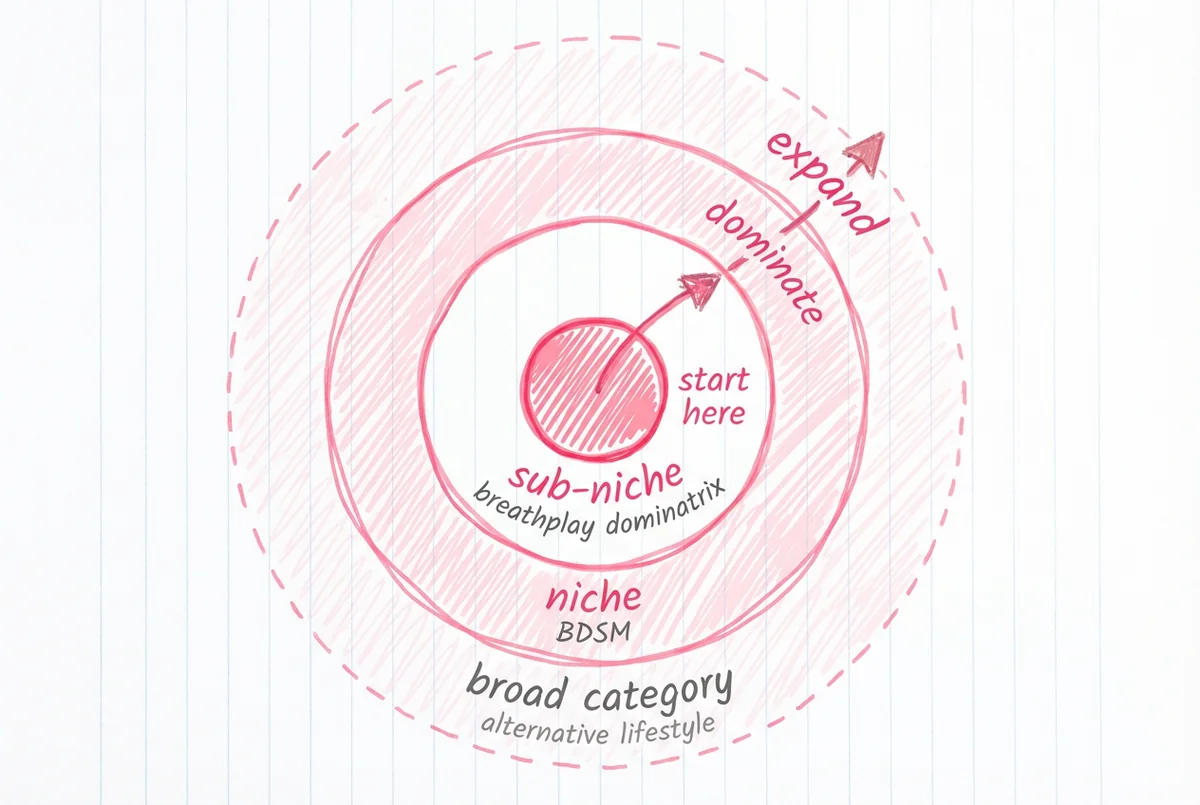 expand
dominate
start
here
sub-niche
breathplay dominatrix
niche
BDSM
broad category
alternative lifestyle